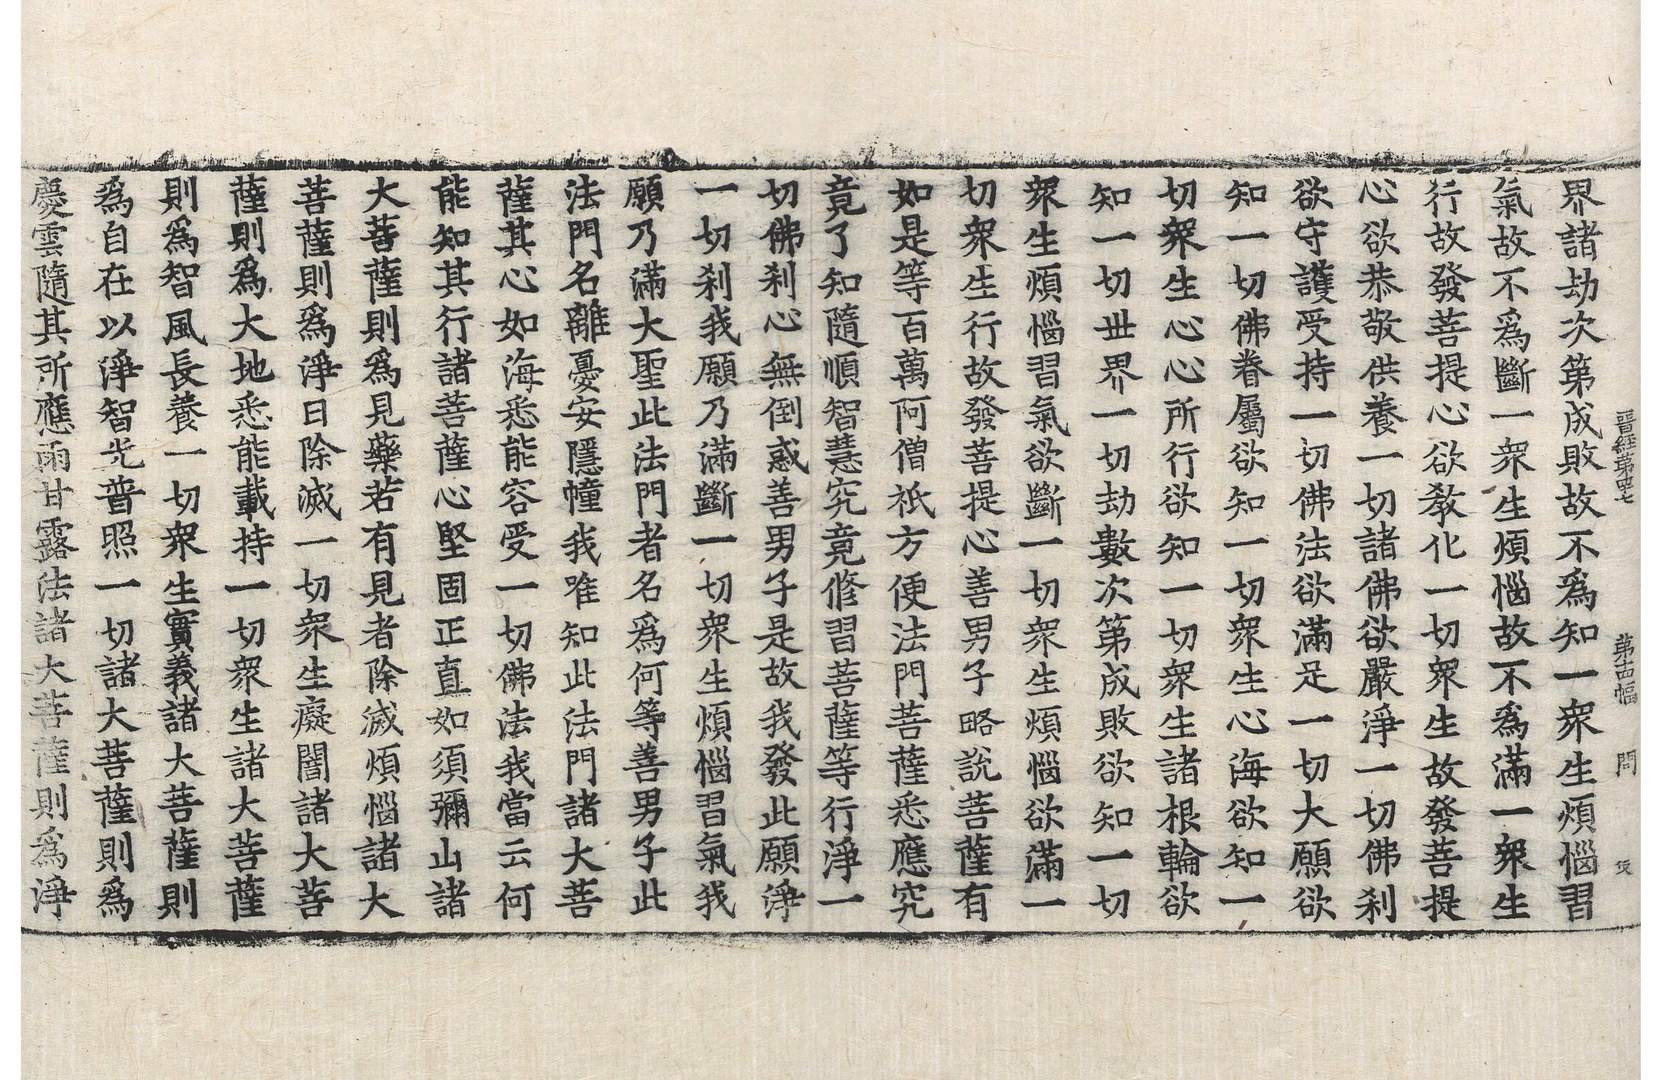 晋経第四七 第十四幅 問
界諸劫次第成敗故不爲知一衆生煩惱習
氣故不爲斷一衆生煩惱故不爲滿一衆生
行故發菩提心欲教化一切衆生故發菩提
心欲恭敬供養一切諸佛欲嚴淨一切佛刹
欲守護受持一切佛法欲滿足一切大願欲
知一切佛眷屬欲知一切衆生心海欲知一
切衆生心心所行欲知一切衆生諸根輪欲
知一切世界一切劫數次第成敗欲知一切
衆生煩惱習氣欲斷一切衆生煩惱欲滿一
切衆生行故發菩提心善男子略說菩薩有
如是等百萬阿僧祇方便法門菩薩悉應究
竟了知隨順智慧究竟修習菩薩等行淨一
切佛刹心無倒惑善男子是故我發此願淨
一切刹我願乃滿斷一切衆生煩惱習氣我
願乃滿大聖此法門者名爲何等善男子此
法門名離憂安隱幢我唯知此法門諸大菩
薩其心如海悉能容受一切佛法我當云何
能知其行諸菩薩心堅固正直如須彌山諸
大菩薩則爲見藥若有見者除滅煩惱諸大
菩薩則爲淨日除滅一切衆生癡闇諸大菩
薩則爲大地悉能載持一切衆生諸大菩薩
則爲智風長養一切衆生實義諸大菩薩則
爲自在以淨智光普照一切諸大菩薩則爲
慶雲隨其所應雨甘露法諸大菩薩則爲淨